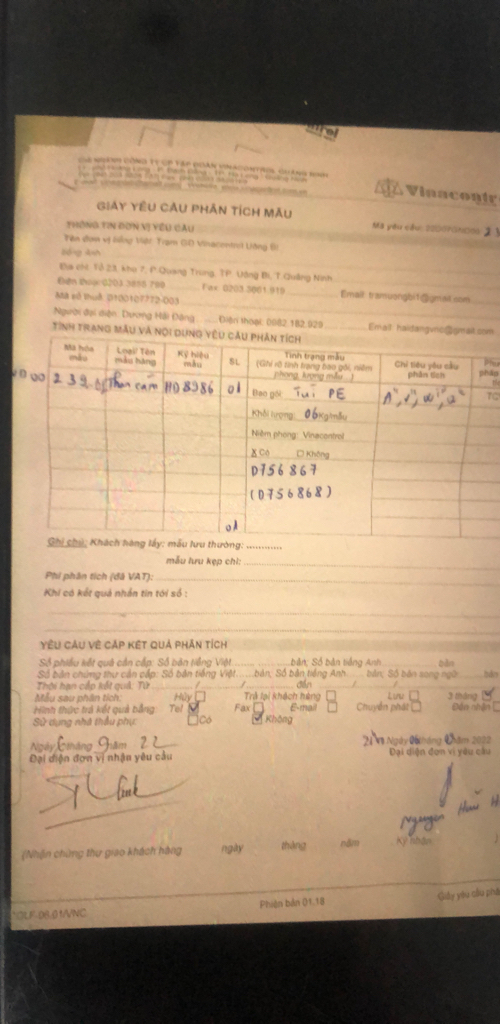 CHI NHÁNH CÔNG TY CP TẬP ĐOÀN VINACONTROL QUẢNG NINH
Vinacontr
GIẤY YÊU CẦU PHÂN TÍCH MẪU
THÔNG TIN ĐƠN VỊ YÊU CẦU
Mã yêu cầu:
Tên đơn vị tiếng Việt: Trạm GĐ Vinacontrol Uông Bí
tiếng Anh:
Địa chỉ: Tổ 23, khu 7, P.Quang Trung, TP. Uông Bí, T.Quảng Ninh
Điện thoại: Fax: 0203.3661.919 Email: tramuongbi1@gmail.com
Mã số thuế: 0100107772-003
Người đại diện: Dương Hải Đăng Điện thoại: 0982.182.929 Email: haidangvnc@gmail.com
TÌNH TRẠNG MẪU VÀ NỘI DUNG YÊU CẦU PHÂN TÍCH
Mã hóa mẫu Loại/ Tên mẫu hàng Ký hiệu mẫu SL Tình trạng mẫu (Ghi rõ tình trạng bao gói, niêm phong, lượng mẫu...) Chỉ tiêu yêu cầu phân tích
239 Than cám HD8386 01 Bao gói: Túi PE
Khối lượng: 06 Kg/mẫu
Niêm phong: Vinacontrol
X Có □ Không
D756867
(D756868)
01
Ghi chú: Khách hàng lấy: mẫu lưu thường: ............
mẫu lưu kẹp chì:
Phí phân tích (đã VAT):
Khi có kết quả nhắn tin tới số :
YÊU CẦU VỀ CẤP KẾT QUẢ PHÂN TÍCH
Số phiếu kết quả cần cấp: Số bản tiếng Việt........ bản; Số bản tiếng Anh........ bản
Số bản chứng thư cần cấp: Số bản tiếng Việt........bản, Số bản tiếng Anh........ bản; Số bản song ngữ........ bản
Thời hạn cấp kết quả: Từ ........ / ........ / đến ........ / ........ /
Mẫu sau phân tích: Hủy □ Trả lại khách hàng □ Lưu □ 3 tháng ☑
Hình thức trả kết quả bằng: Tel ☑ Fax □ E-mail □ Chuyển phát □ Đến nhận □
Sử dụng nhà thầu phụ: □ Có ☑ Không
Ngày 6 tháng 9 năm 22
Ngày 06 tháng năm 2022
Đại diện đơn vị nhận yêu cầu
Đại diện đơn vị yêu cầu
Nguyen
(Nhận chứng thư giao khách hàng ngày tháng năm Ký nhận
Phiên bản 01.18
Giấy yêu cầu phâ